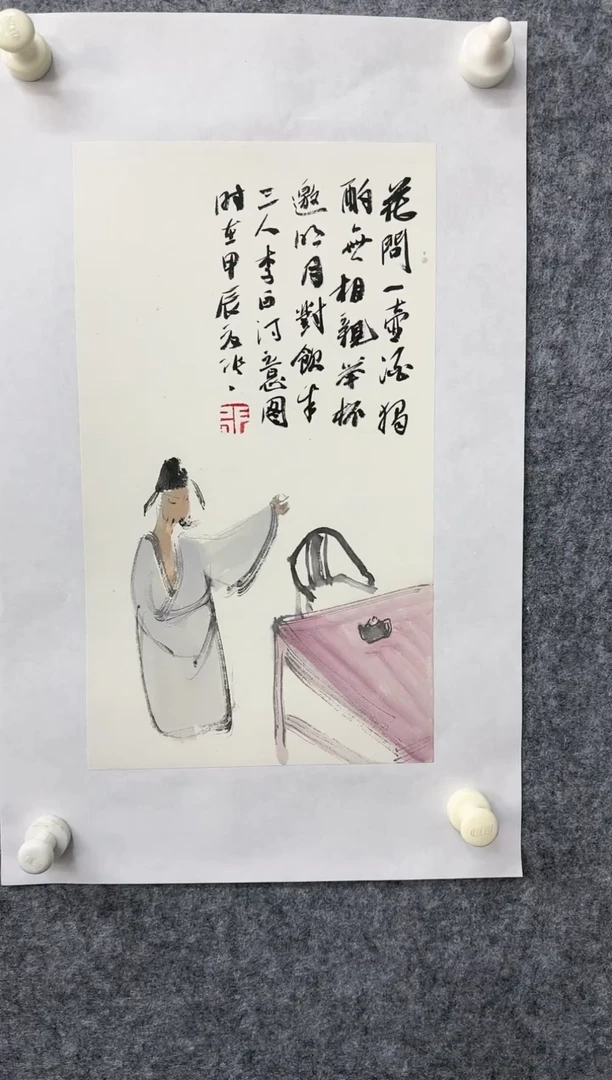 花間一壺酒獨
酌無相親举杯
邀明月對飲成
三人李白詩意图
时在甲辰